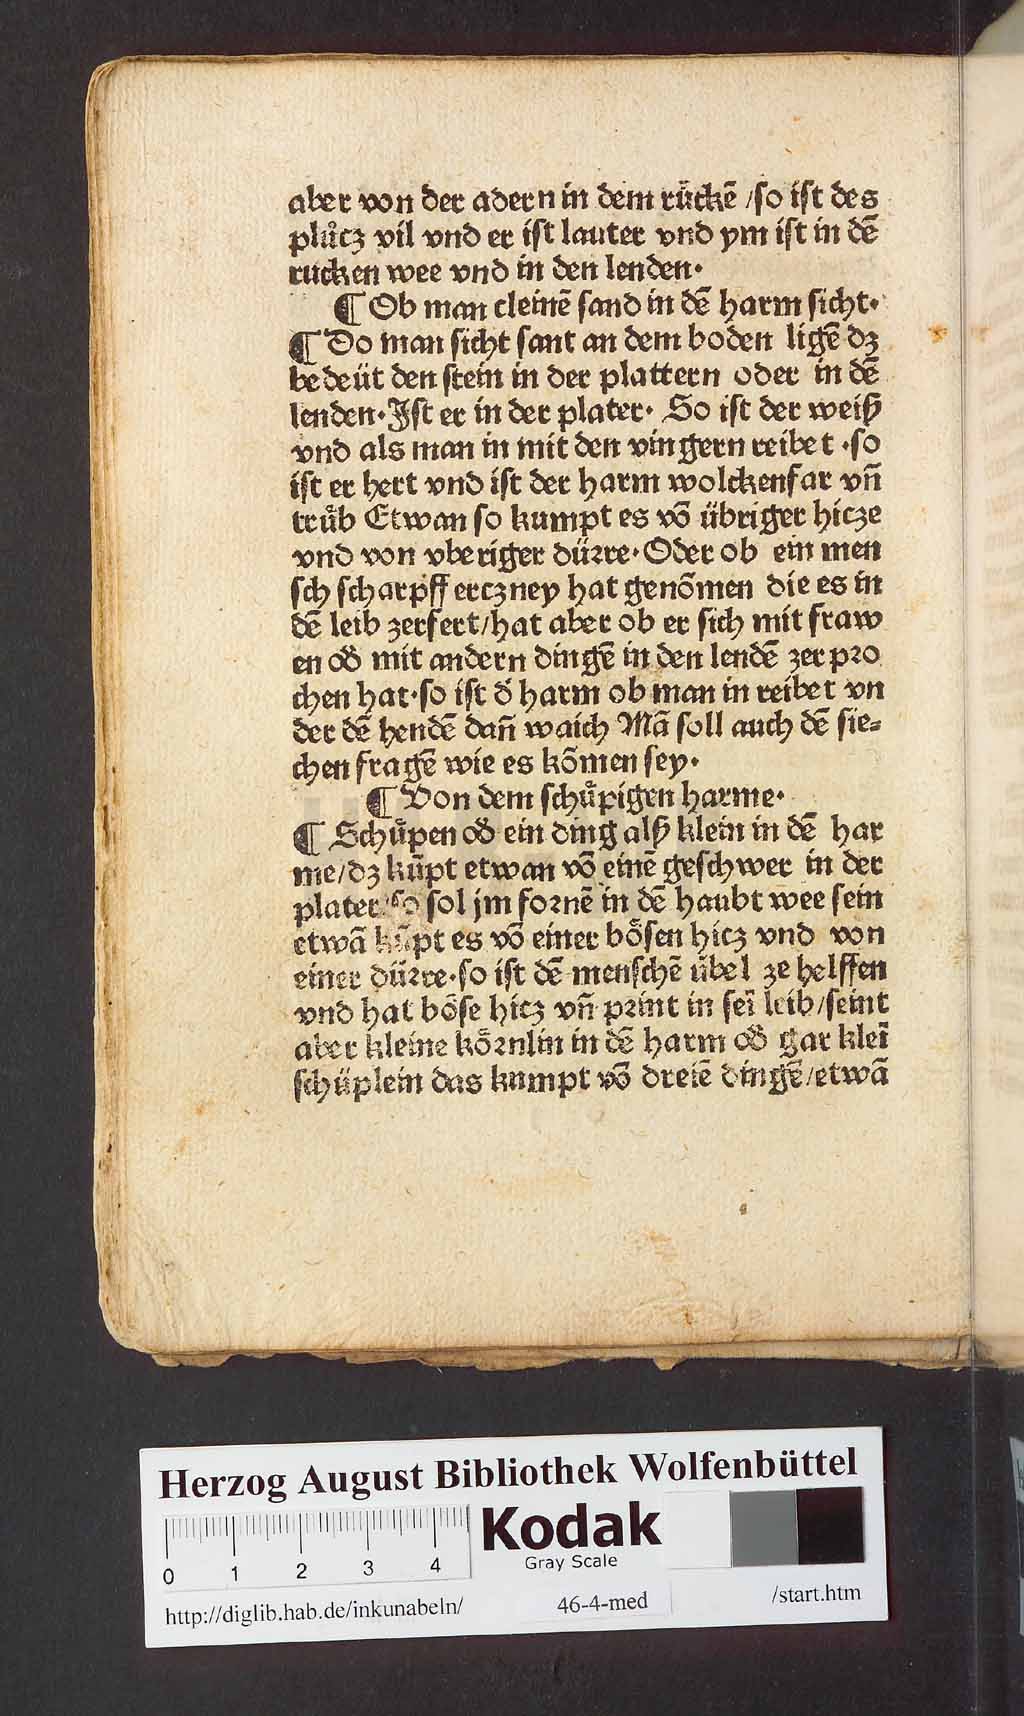 aber von der adern in dem rückē /so ist des
plůcz vil vnd er ist lauter vnd ym ist in dē
rucken wee vnd in den lenden·
¶ Ob man cleinē sand in dē harm sicht·
¶ Do man sicht sant an dem boden ligē dz
bedeüt den stein in der plattern oder in dē
lenden· Jst er in der plater· So ist der weiß
vnd als man in mit den vingern reibet ·so
ist er hert vnd ist der harm wolckenfar vn̄
trůb Etwan so kumpt es vō übriger hicze
vnd von vberiger dürre· Oder ob ein men
sch scharpff erczney hat genōmen die es in
dē leib zerfert/hat aber ob er sich mit fraw
en od̓ mit andern dingē in den lendē zerpro
chen hat·so ist d̓ harm ob man in reibet vn
der dē hendē dan̄ waich Mā soll auch dē sie⸗
chen fragē wie es kōmen sey·
¶ Von dem schůpigen harme·
¶ Schůpen od̓ ein ding alß klein in dē har
me/dz kūpt etwan vō einē geschwer in der
plater/so sol jm fornē in dē haubt wee sein
etwā kūpt es vō einer bösen hicz vnd von
einer dürre·so ist dē menschē übel ze helffen
vnd hat böse hicz vn̄ print in seī leib/seint
aber kleine körnlin in dē harm od̓ gar kleī
schüplein das kumpt vō dreiē dingē/etwā
Herzog August Bibliothek Wolfenbüttel
Kodak
Gray Scale
0 1 2 3 4
http://diglib.hab.de/inkunabeln/ 46-4-med /start.htm